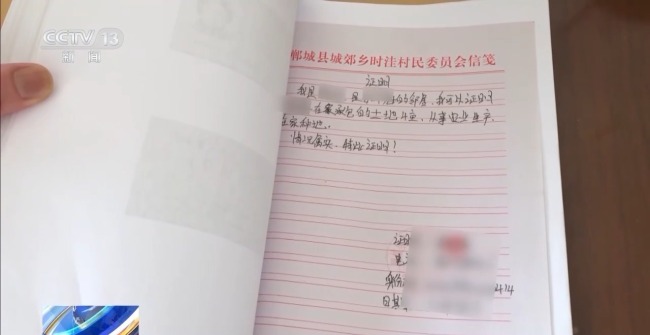 CCTV 13
新闻
郸城县城郊乡时洼村民委员会信笺
证明
我是 是 的邻居,我可以证明
在家承包的土地 亩,从事农业生产,
在家种地.
情况属实、特此证明!
证明
电
身份
474
日期